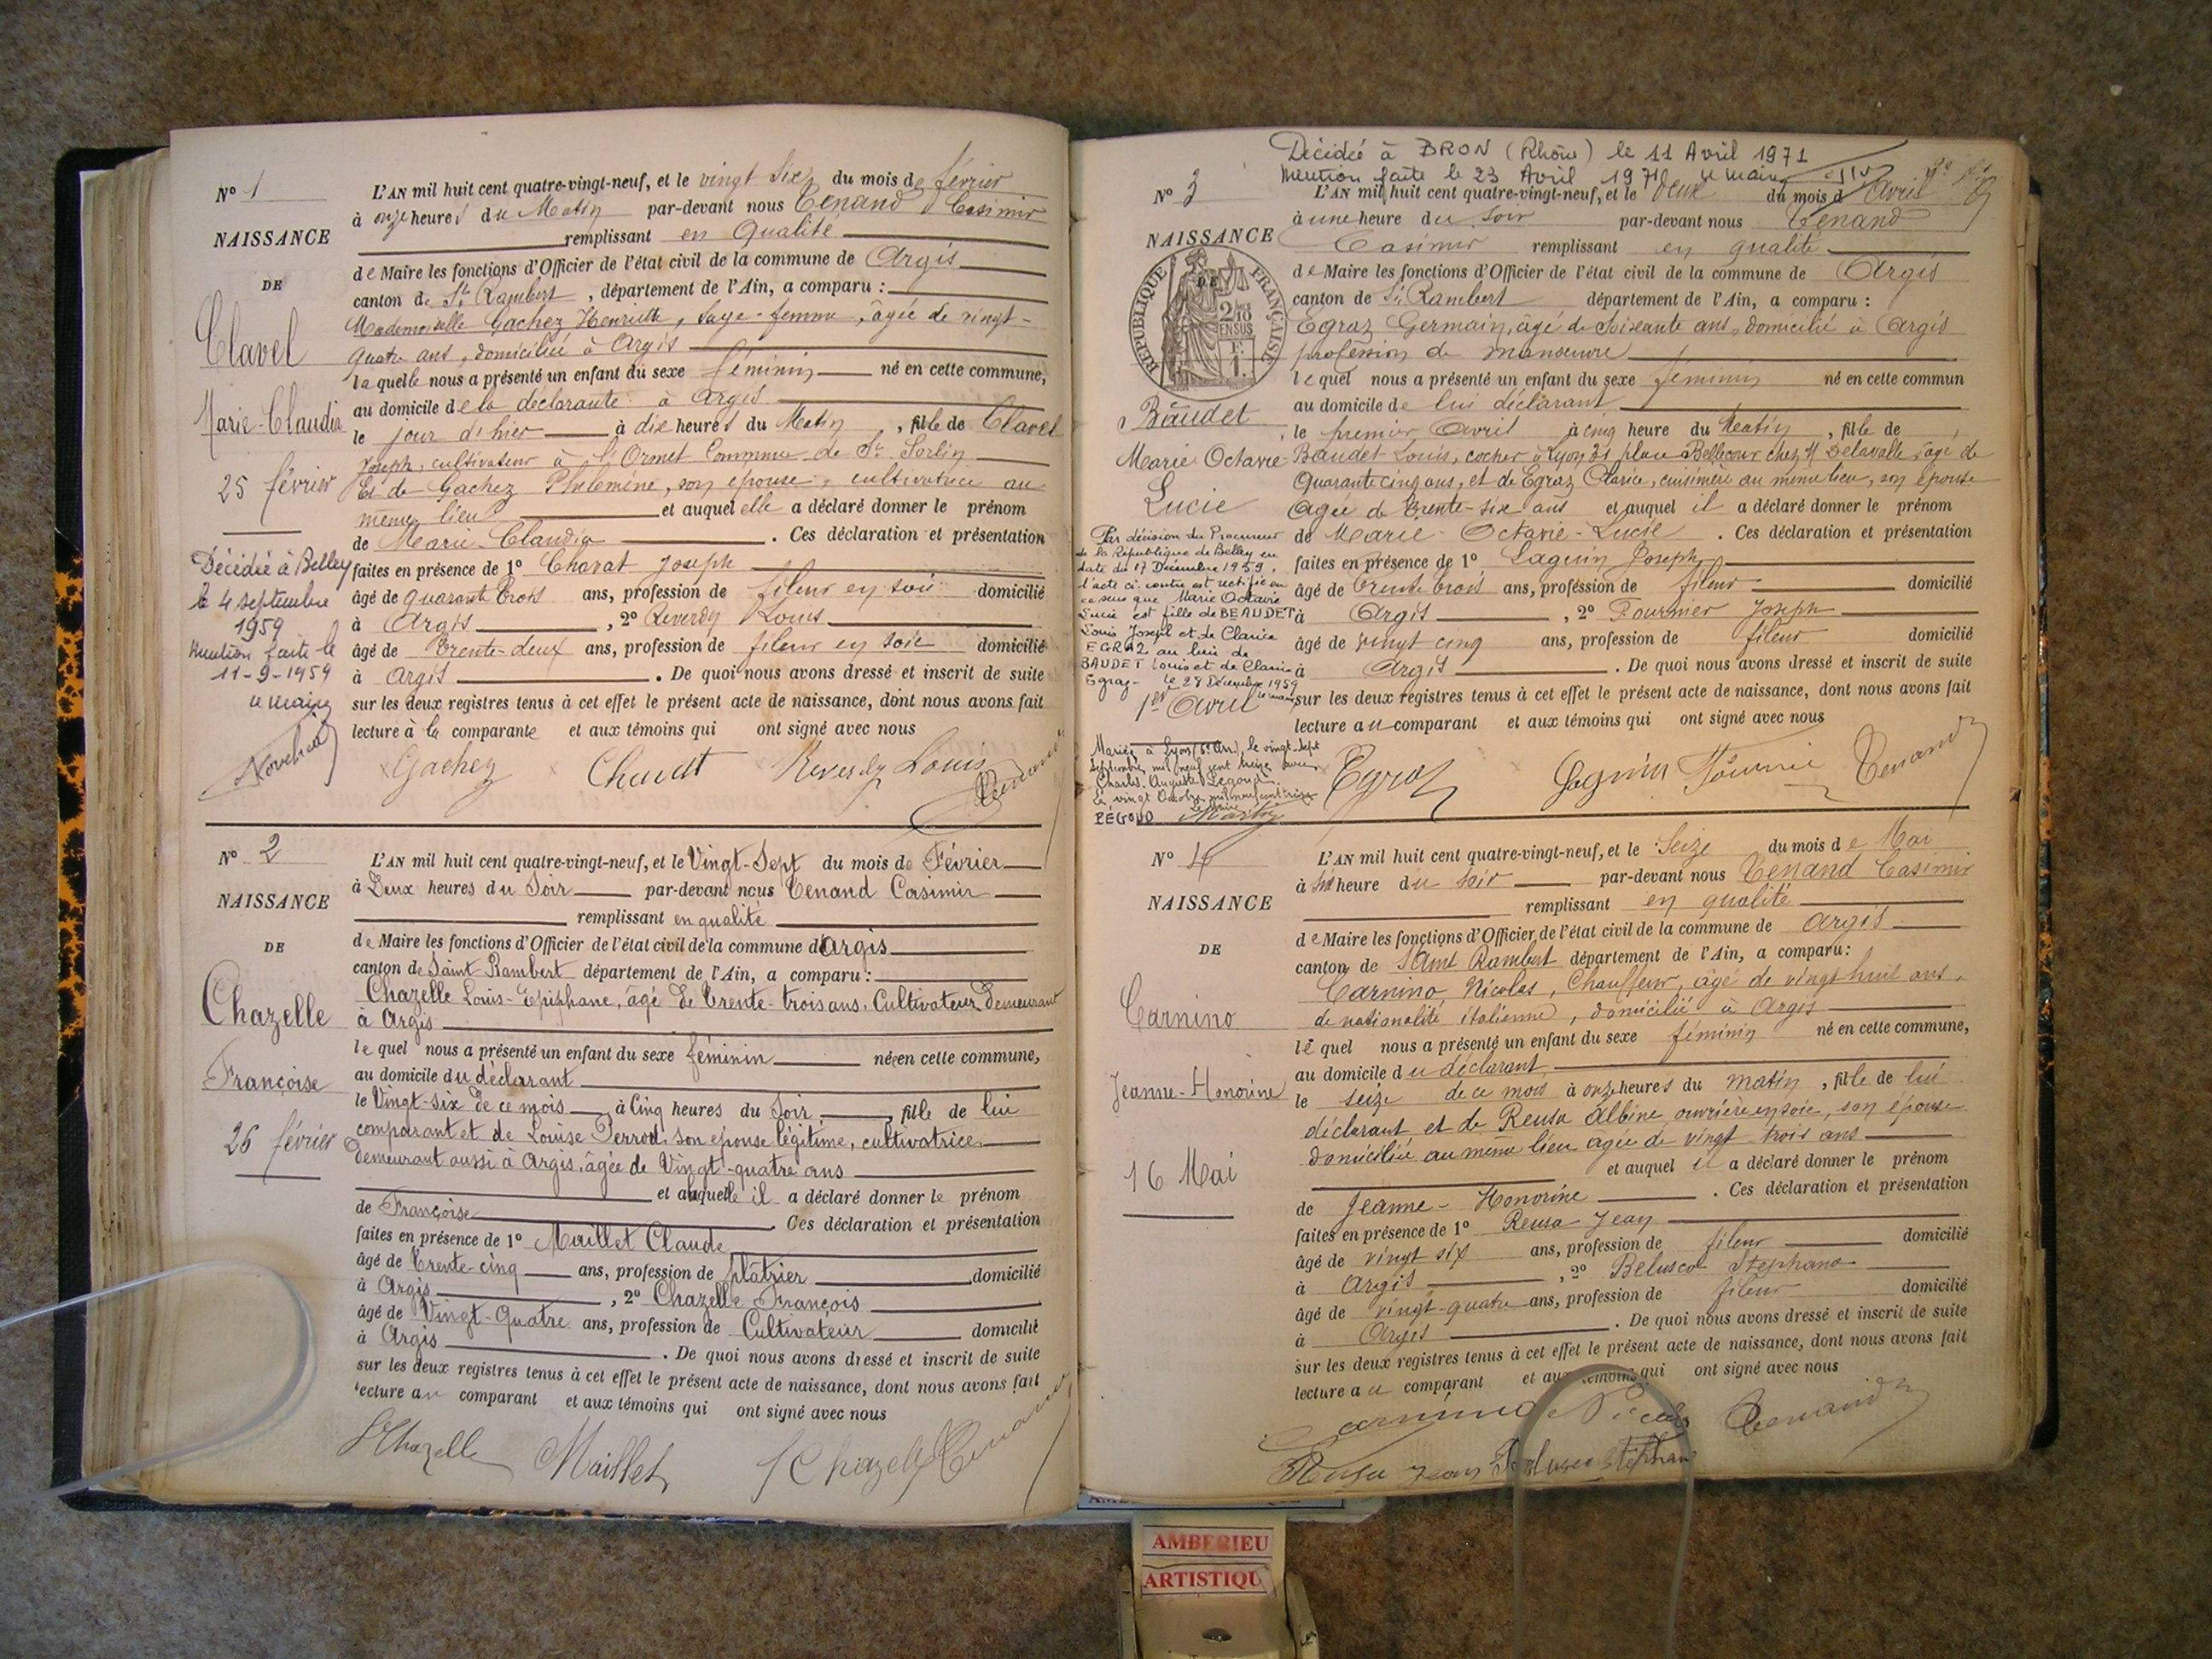 N° 1
NAISSANCE
DE
Clavel
Marie-Claudia
25 février
Décédée à Belley
le 4 septembre
1959
Mention faite le
11-9-1959
le maire
L'AN mil huit cent quatre-vingt-neuf, et le vingt six du mois de février
à onze heures du Matin par-devant nous Tenand Casimir
remplissant en qualité
de Maire les fonctions d'Officier de l'état civil de la commune de Argis
canton de St Rambert, département de l'Ain, a comparu :
Mademoiselle Gachez Henriette, sage-femme, âgée de vingt-
quatre ans, domiciliée à Argis
laquelle nous a présenté un enfant du sexe féminin né en cette commune,
au domicile de la déclarante à Argis
le jour d'hier à dix heures du Matin, fille de Clavel
Joseph, cultivateur à l'Ormet Commune de St Sorlin
Et de Gachez Philomène, son épouse, cultivatrice au
même lieu et auquel elle a déclaré donner le prénom
de Marie-Claudia. Ces déclaration et présentation
faites en présence de 1° Chavat Joseph
âgé de quarante trois ans, profession de fileur en soie domicilié
à Argis, 2° Reverdy Louis
âgé de Trente-deux ans, profession de fileur en soie domicilié
à Argis. De quoi nous avons dressé et inscrit de suite
sur les deux registres tenus à cet effet le présent acte de naissance, dont nous avons fait
lecture à la comparante et aux témoins qui ont signé avec nous
Gachez Chavat Reverdy Louis Tenand
N° 2
NAISSANCE
DE
Chazelle
Françoise
26 février
L'AN mil huit cent quatre-vingt-neuf, et le Vingt-Sept du mois de Février
à Deux heures du Soir par-devant nous Tenand Casimir
remplissant en qualité
de Maire les fonctions d'Officier de l'état civil de la commune d'Argis
canton de Saint-Rambert département de l'Ain, a comparu :
Chazelle Louis-Epiphane, âgé de Trente-trois ans, Cultivateur, Demeurant
à Argis
lequel nous a présenté un enfant du sexe féminin né en cette commune,
au domicile du déclarant
le Vingt-six de ce mois à Cinq heures du Soir, fille de lui
comparant et de Louise Perrod, son épouse légitime, cultivatrice,
Demeurant aussi à Argis, âgée de Vingt-quatre ans
et à laquelle il a déclaré donner le prénom
de Françoise. Ces déclaration et présentation
faites en présence de 1° Maillet Claude
âgé de Trente-cinq ans, profession de plâtrier domicilié
à Argis, 2° Chazelle François
âgé de Vingt-Quatre ans, profession de Cultivateur domicilié
à Argis. De quoi nous avons dressé et inscrit de suite
sur les deux registres tenus à cet effet le présent acte de naissance, dont nous avons fait
lecture au comparant et aux témoins qui ont signé avec nous
LChazelle Maillet Chazelle Tenand
Décédée à BRON (Rhône) le 11 Avril 1971
Mention faite le 23 Avril 1971 le maire
N° 3
NAISSANCE
DE
RÉPUBLIQUE FRANÇAISE
2/10 EN SUS
F. 1.
Baudet
Marie Octavie
Lucie
Par décision du Procureur
de la République de Belley en
date du 17 Décembre 1959,
l'acte ci-contre est rectifié en
ce sens que Marie Octavie
Lucie est fille de BEAUDET
Louis Joseph et de Clarice
EGRAZ au lieu de
BAUDET Louis et de Clarice
Egraz- le 28 Décembre 1959
le maire
1er Avril
Mariée à Lyon (6e Arr), le vingt-sept
septembre mil neuf cent treize avec
Charles Auguste Pégoud.
Le vingt Octobre mil neuf cent treize
Le Maire
PÉGOUD
L'AN mil huit cent quatre-vingt-neuf, et le deux du mois d'Avril
à une heure du soir par-devant nous Tenand
Casimir remplissant en qualité
de Maire les fonctions d'Officier de l'état civil de la commune de Argis
canton de St Rambert département de l'Ain, a comparu :
Egraz Germain, âgé de Soixante ans, domicilié à Argis
profession de manœuvre
lequel nous a présenté un enfant du sexe féminin né en cette commun
au domicile de lui déclarant
le premier Avril à cinq heure du Matin, fille de
Baudet Louis, cocher à Lyon 31 place Bellecour chez Mr Delavalle, âgé de
Quarante cinq ans, et de Egraz Clarice, cuisinière au même lieu, son épouse
Agée de Trente-six ans et auquel il a déclaré donner le prénom
de Marie-Octavie-Lucie. Ces déclaration et présentation
faites en présence de 1° Laguin Joseph
âgé de Trente trois ans, profession de fileur domicilié
à Argis, 2° Fournier Joseph
âgé de vingt cinq ans, profession de fileur domicilié
à Argis. De quoi nous avons dressé et inscrit de suite
sur les deux registres tenus à cet effet le présent acte de naissance, dont nous avons fait
lecture au comparant et aux témoins qui ont signé avec nous
Egraz Laguin Fournier Tenand
N° 4
NAISSANCE
DE
Carnino
Jeanne-Honorine
16 Mai
L'AN mil huit cent quatre-vingt-neuf, et le Seize du mois de Mai
à six heure du soir par-devant nous Tenand Casimir
remplissant en qualité
de Maire les fonctions d'Officier de l'état civil de la commune de Argis
canton de Saint Rambert département de l'Ain, a comparu :
Carnino Nicolas, Chauffeur, âgé de vingt huit ans,
de nationalité italienne, domicilié à Argis
lequel nous a présenté un enfant du sexe féminin né en cette commune,
au domicile du déclarant
le seize de ce mois à onze heures du matin, fille de lui
déclarant et de Reusa Albine ouvrière en soie, son épouse
domiciliée au même lieu agée de vingt trois ans
et auquel il a déclaré donner le prénom
de Jeanne-Honorine. Ces déclaration et présentation
faites en présence de 1° Reusa Jean
âgé de vingt six ans, profession de fileur domicilié
à Argis, 2° Belusco Stephano
âgé de vingt-quatre ans, profession de fileur domicilié
à Argis. De quoi nous avons dressé et inscrit de suite
sur les deux registres tenus à cet effet le présent acte de naissance, dont nous avons fait
lecture au comparant et aux témoins qui ont signé avec nous
Carnino Nicola Tenand
Reusa Jean Belusco Stephano
AMBERIEU
ARTISTIQU